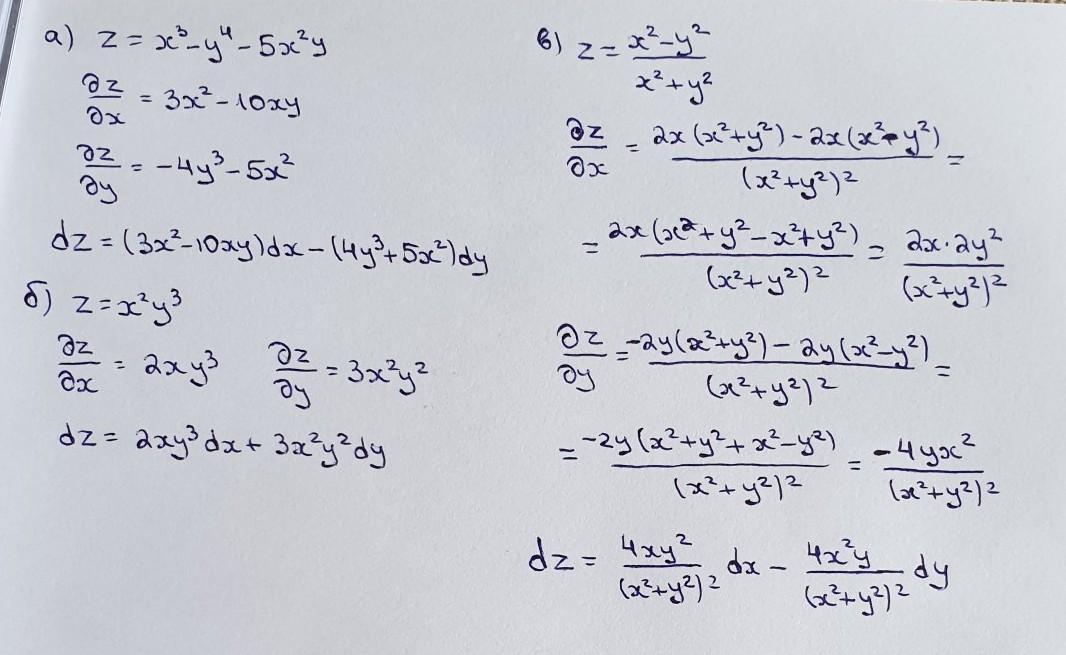 а) z = x³ - y⁴ - 5x²y
∂z/∂x = 3x² - 10xy
∂z/∂y = -4y³ - 5x²
dz = (3x² - 10xy)dx - (4y³ + 5x²)dy
б) z = x²y³
∂z/∂x = 2xy³   ∂z/∂y = 3x²y²
dz = 2xy³dx + 3x²y²dy
в) z = (x² - y²)/(x² + y²)
∂z/∂x = (2x(x² + y²) - 2x(x² - y²))/(x² + y²)² =
= (2x(x² + y² - x² + y²))/(x² + y²)² = (2x · 2y²)/(x² + y²)²
∂z/∂y = (-2y(x² + y²) - 2y(x² - y²))/(x² + y²)² =
= (-2y(x² + y² + x² - y²))/(x² + y²)² = (-4yx²)/(x² + y²)²
dz = (4xy²)/(x² + y²)² dx - (4x²y)/(x² + y²)² dy